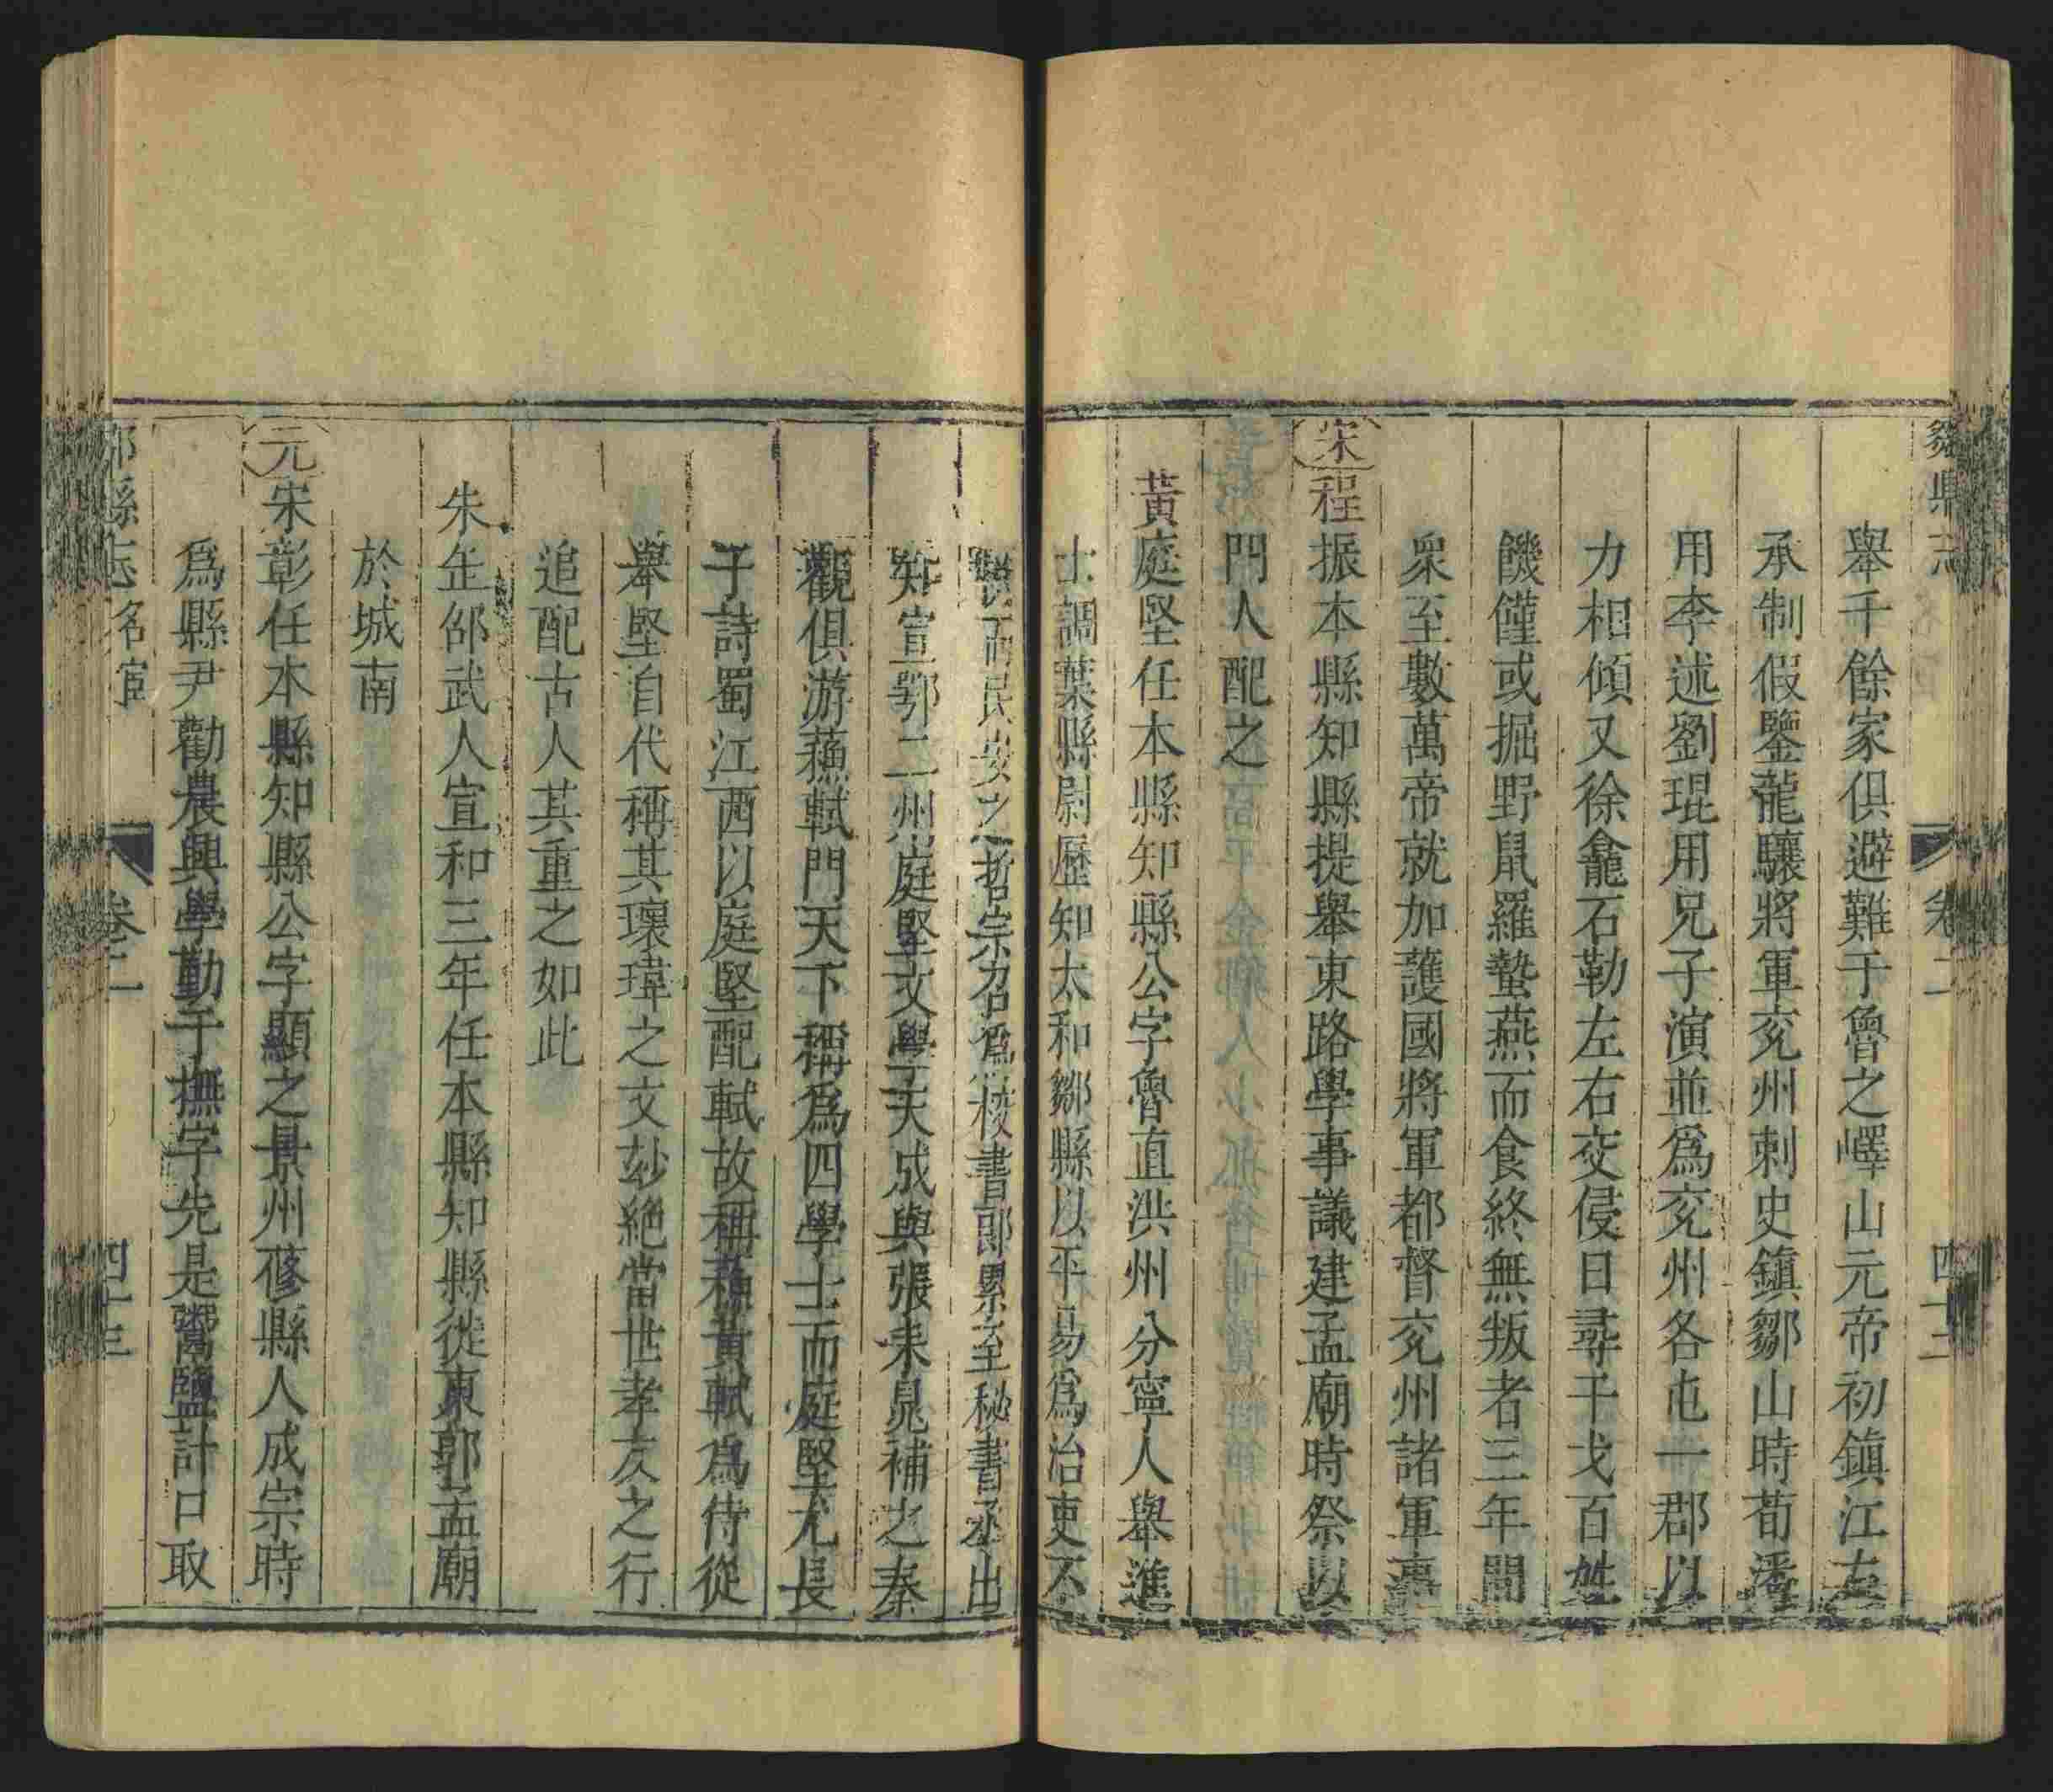 鄒縣志 卷二 四十二
舉千餘家俱避難于魯之嶧山元帝初鎮江左
承制假鑒龍驤將軍兖州刺史鎮鄒山時荀藩
用李述劉琨用兄子演並爲兖州各屯一郡以
力相傾又徐龕石勒左右交侵日尋干戈百姓
饑僅或掘野鼠羅蟄燕而食終無叛者三年間
衆至數萬帝就加護國將軍都督兖州諸軍事
宋程振本縣知縣提舉東路學事議建孟廟時祭以
門人配之
黃庭堅任本縣知縣公字魯直洪州分寧人舉進
士調葉縣尉歷知太和鄒縣以平易爲治吏不
民安之哲宗召爲校書郎累至秘書丞出
知宣鄂二州庭堅文學天成與張耒晁補之秦
觀俱游蘓軾門天下稱爲四學士而庭堅尤長
于詩蜀江西以庭堅配軾故稱蘓黃軾爲侍從
舉堅自代稱其瓌瑋之文玅絶當世孝友之行
追配古人其重之如此
朱缶邵武人宣和三年任本縣知縣徙東郭孟廟
於城南
元宋彰任本縣知縣公字顯之景州蓚縣人成宗時
爲縣尹勸農興學勤于撫字先是鬻鹽計口取
鄒縣志 名宦 卷二 四十三